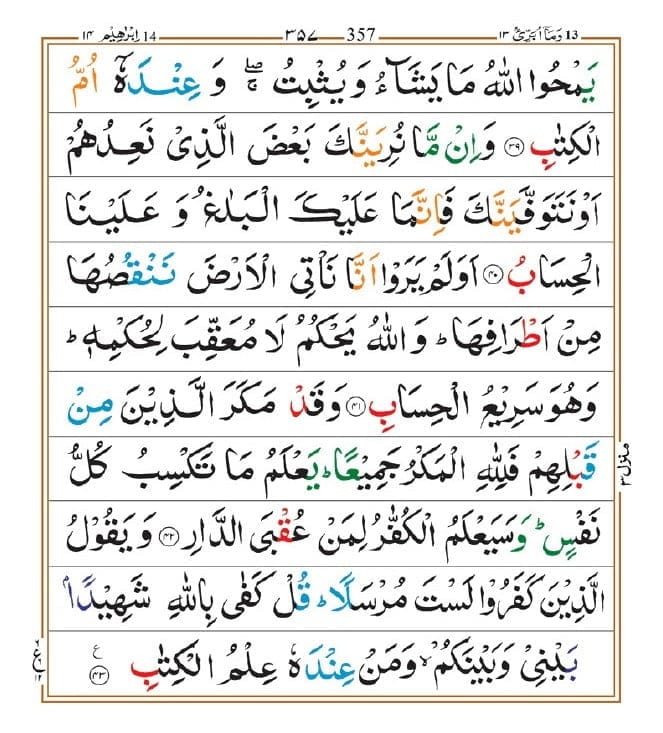 وَمَاۤ اُبَرِّئُ ١٣ 13 ٣٥٧ 357 اِبْرٰهِيْم ١٤ 14
يَمْحُوا اللّٰهُ مَا يَشَآءُ وَيُثْبِتُ ۖۚ وَ عِنْدَهٗۤ اُمُّ
الْكِتٰبِ ﴿۳۹﴾ وَاِنْ مَّا نُرِيَنَّكَ بَعْضَ الَّذِىْ نَعِدُهُمْ
اَوْ نَتَوَفَّيَنَّكَ فَاِنَّمَا عَلَيْكَ الْبَلٰغُ وَ عَلَيْنَا
الْحِسَابُ ﴿۴۰﴾ اَوَلَمْ يَرَوْا اَنَّا نَاْتِى الْاَرْضَ نَنْقُصُهَا
مِنْ اَطْرَافِهَا ؕ وَاللّٰهُ يَحْكُمُ لَا مُعَقِّبَ لِحُكْمِهٖ ؕ
وَهُوَ سَرِيْعُ الْحِسَابِ ﴿۴۱﴾ وَقَدْ مَكَرَ الَّذِيْنَ مِنْ
قَبْلِهِمْ فَلِلّٰهِ الْمَكْرُ جَمِيْعًا ؕ يَعْلَمُ مَا تَكْسِبُ كُلُّ
نَفْسٍ ؕ وَسَيَعْلَمُ الْكُفّٰرُ لِمَنْ عُقْبَى الدَّارِ ﴿۴۲﴾ وَيَقُوْلُ
الَّذِيْنَ كَفَرُوْا لَسْتَ مُرْسَلًا ؕ قُلْ كَفٰى بِاللّٰهِ شَهِيْدًۢا
بَيْنِىْ وَبَيْنَكُمْ ۙ وَمَنْ عِنْدَهٗ عِلْمُ الْكِتٰبِ ﴿۴۳﴾ ع
منزل ٣